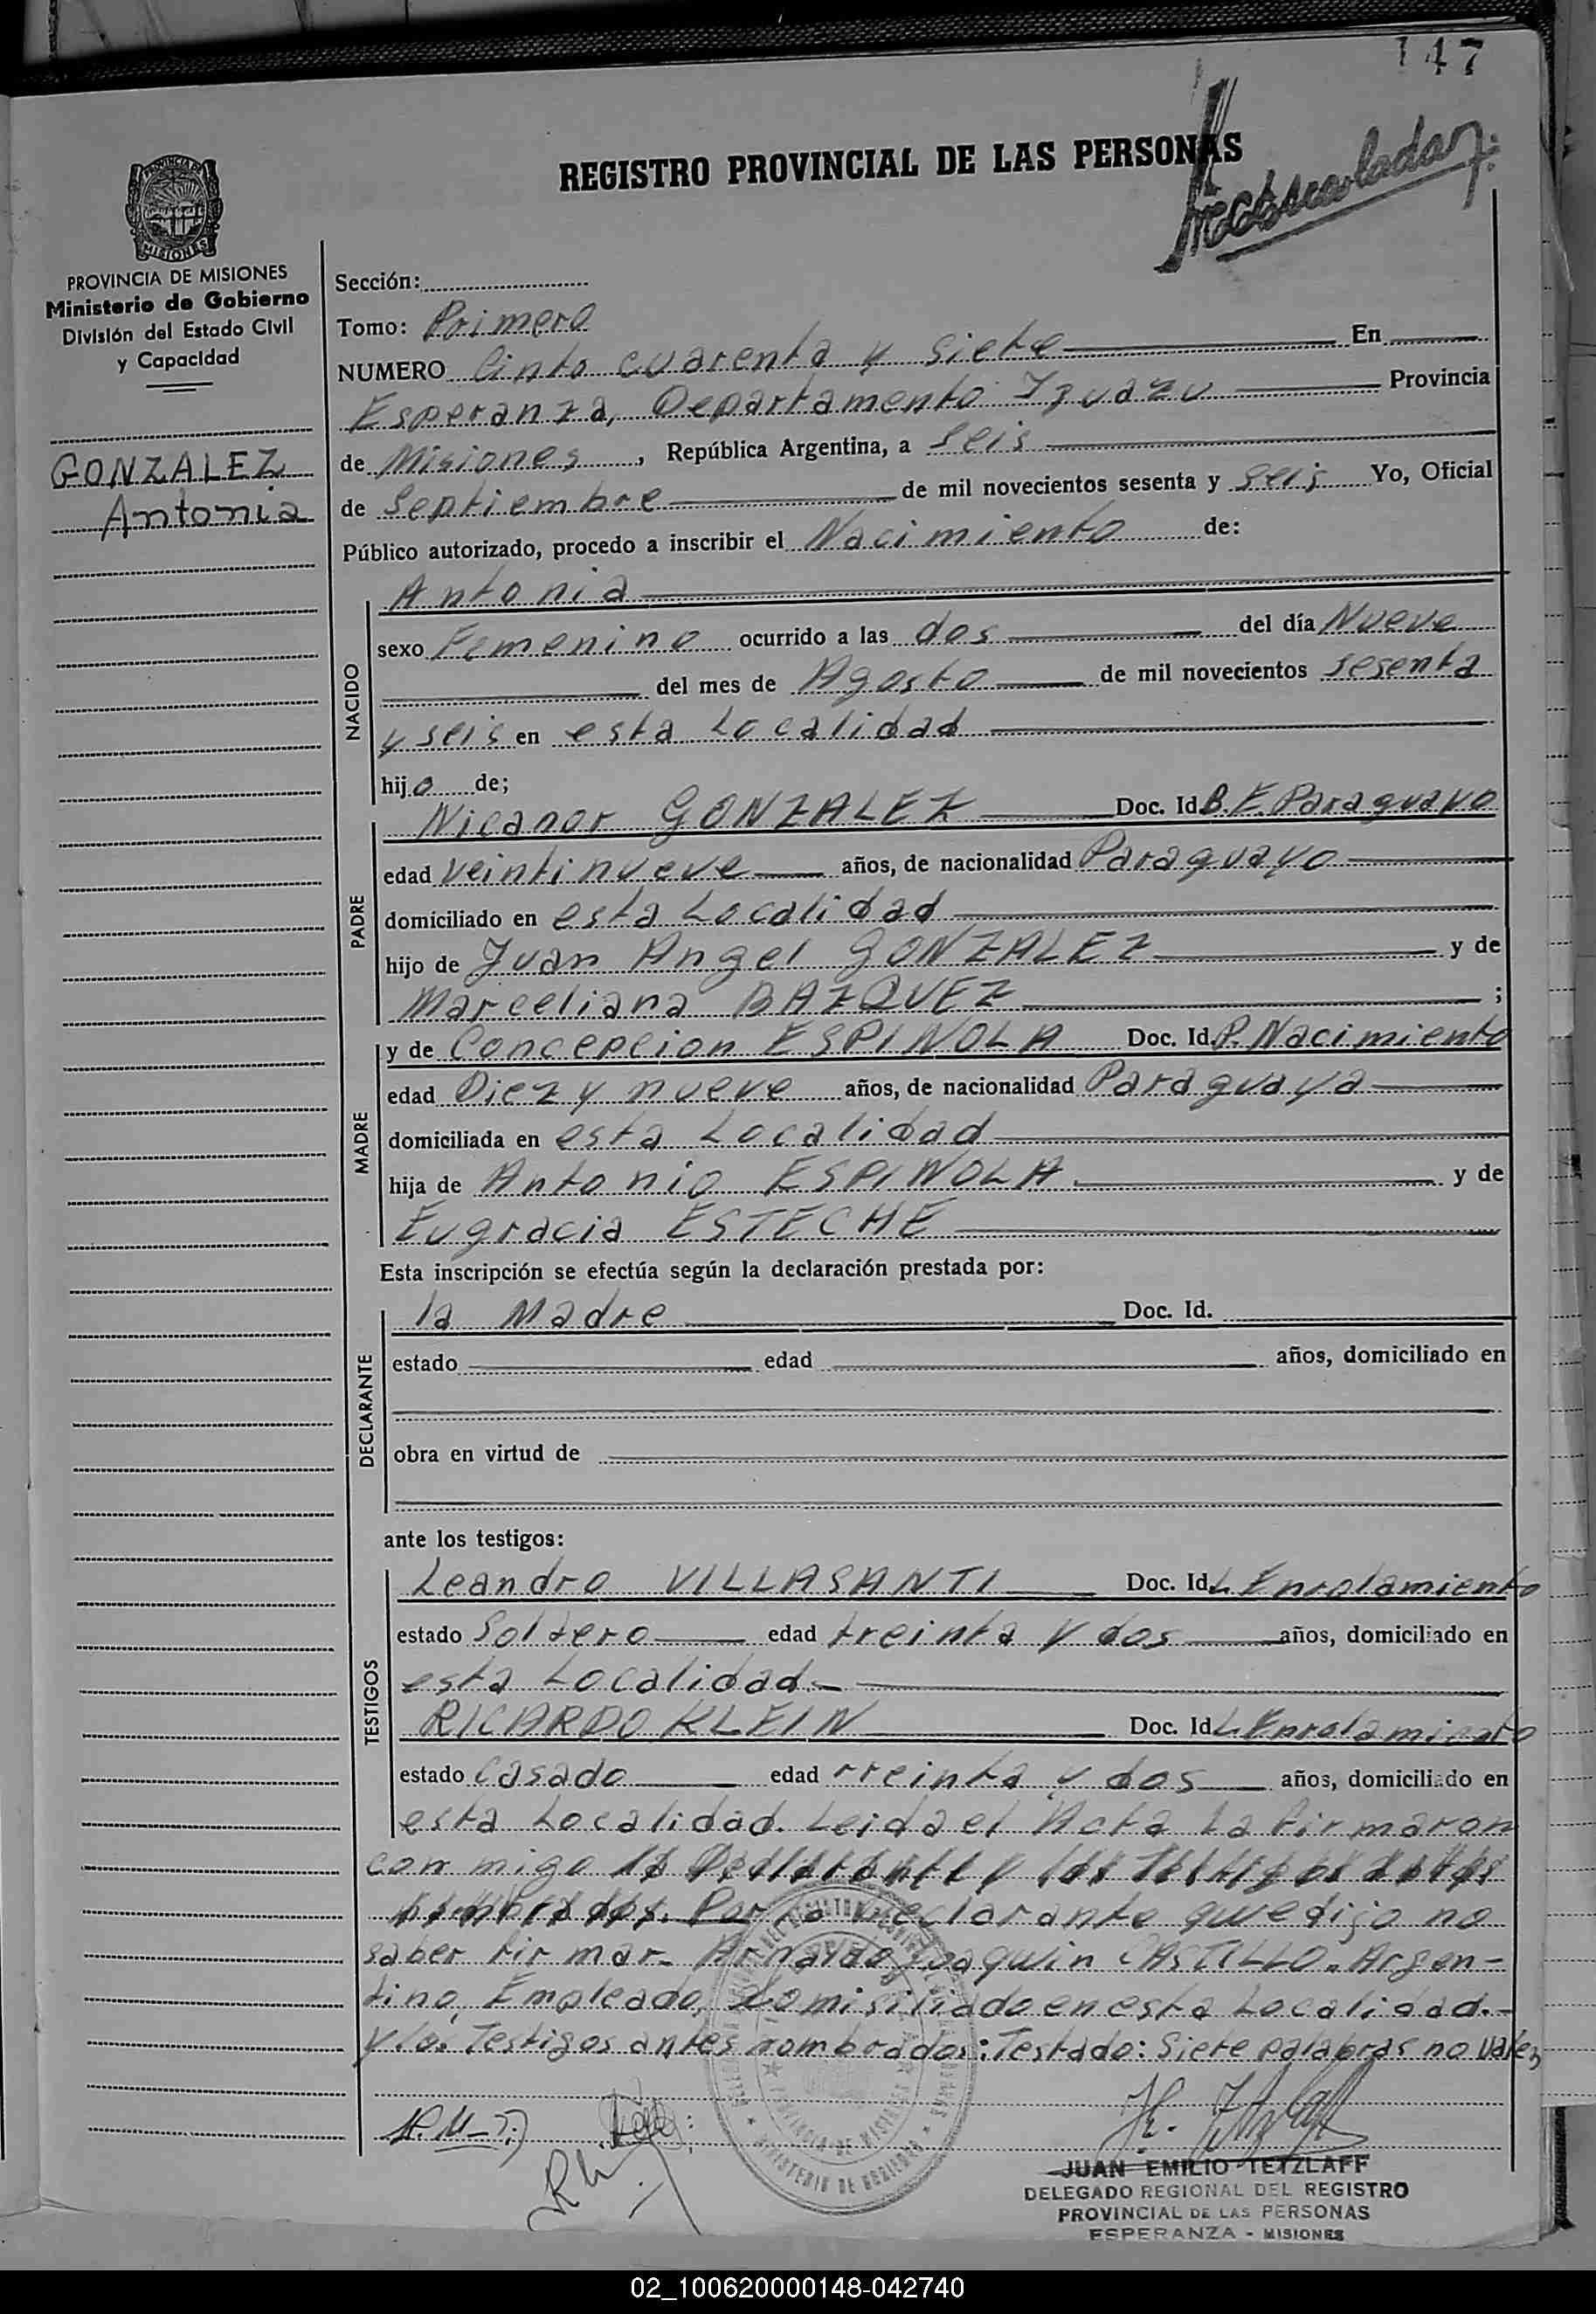 147
REGISTRO PROVINCIAL DE LAS PERSONAS
PROVINCIA DE MISIONES
Ministerio de Gobierno
División del Estado Civil
y Capacidad
GONZALEZ
Antonia
Sección:
Tomo: Primero
NUMERO Cinto cuarenta y siete En
Esperanza, Departamento Iguazu Provincia
de Misiones, República Argentina, a Seis
de Septiembre de mil novecientos sesenta y seis Yo, Oficial
Público autorizado, procedo a inscribir el Nacimiento de:
NACIDO
Antonia
sexo Femenino ocurrido a las dos del día Nueve
del mes de Agosto de mil novecientos sesenta
y seis en esta Localidad
hijo de;
PADRE
Nicanor GONZALEZ Doc. Id. B.E. Paraguayo
edad veintinueve años, de nacionalidad Paraguayo
domiciliado en esta Localidad
hijo de Juan Angel GONZALEZ y de
Marceliana BAZQUEZ ;
MADRE
y de Concepcion ESPINOLA Doc. Id. P. Nacimiento
edad Diez y nueve años, de nacionalidad Paraguaya
domiciliada en esta Localidad
hija de Antonio ESPINOLA y de
Eugracia ESTECHE
Esta inscripción se efectúa según la declaración prestada por:
DECLARANTE
la Madre Doc. Id.
estado edad años, domiciliado en
obra en virtud de
ante los testigos:
TESTIGOS
Leandro VILLASANTI Doc. Id. L Enrolamiento
estado Soltero edad treinta y dos años, domiciliado en
esta Localidad.-
RICARDO KLEIN Doc. Id L. Enrolamiento
estado Casado edad treinta y dos años, domiciliado en
esta Localidad. Leida el Acta La firmaron
con migo la Declarante y los Testigos antes
nombrados. Por la Declarante que dijo no
saber firmar- Arnaldo Joaquin CASTILLO. Argen-
tino, Empleado, Domisiliado en esta Localidad.-
y los Testigos antes nombrados: Testado: Siete palabras no valen
JUAN EMILIO TETZLAFF
DELEGADO REGIONAL DEL REGISTRO
PROVINCIAL DE LAS PERSONAS
ESPERANZA - MISIONES
02_100620000148-042740